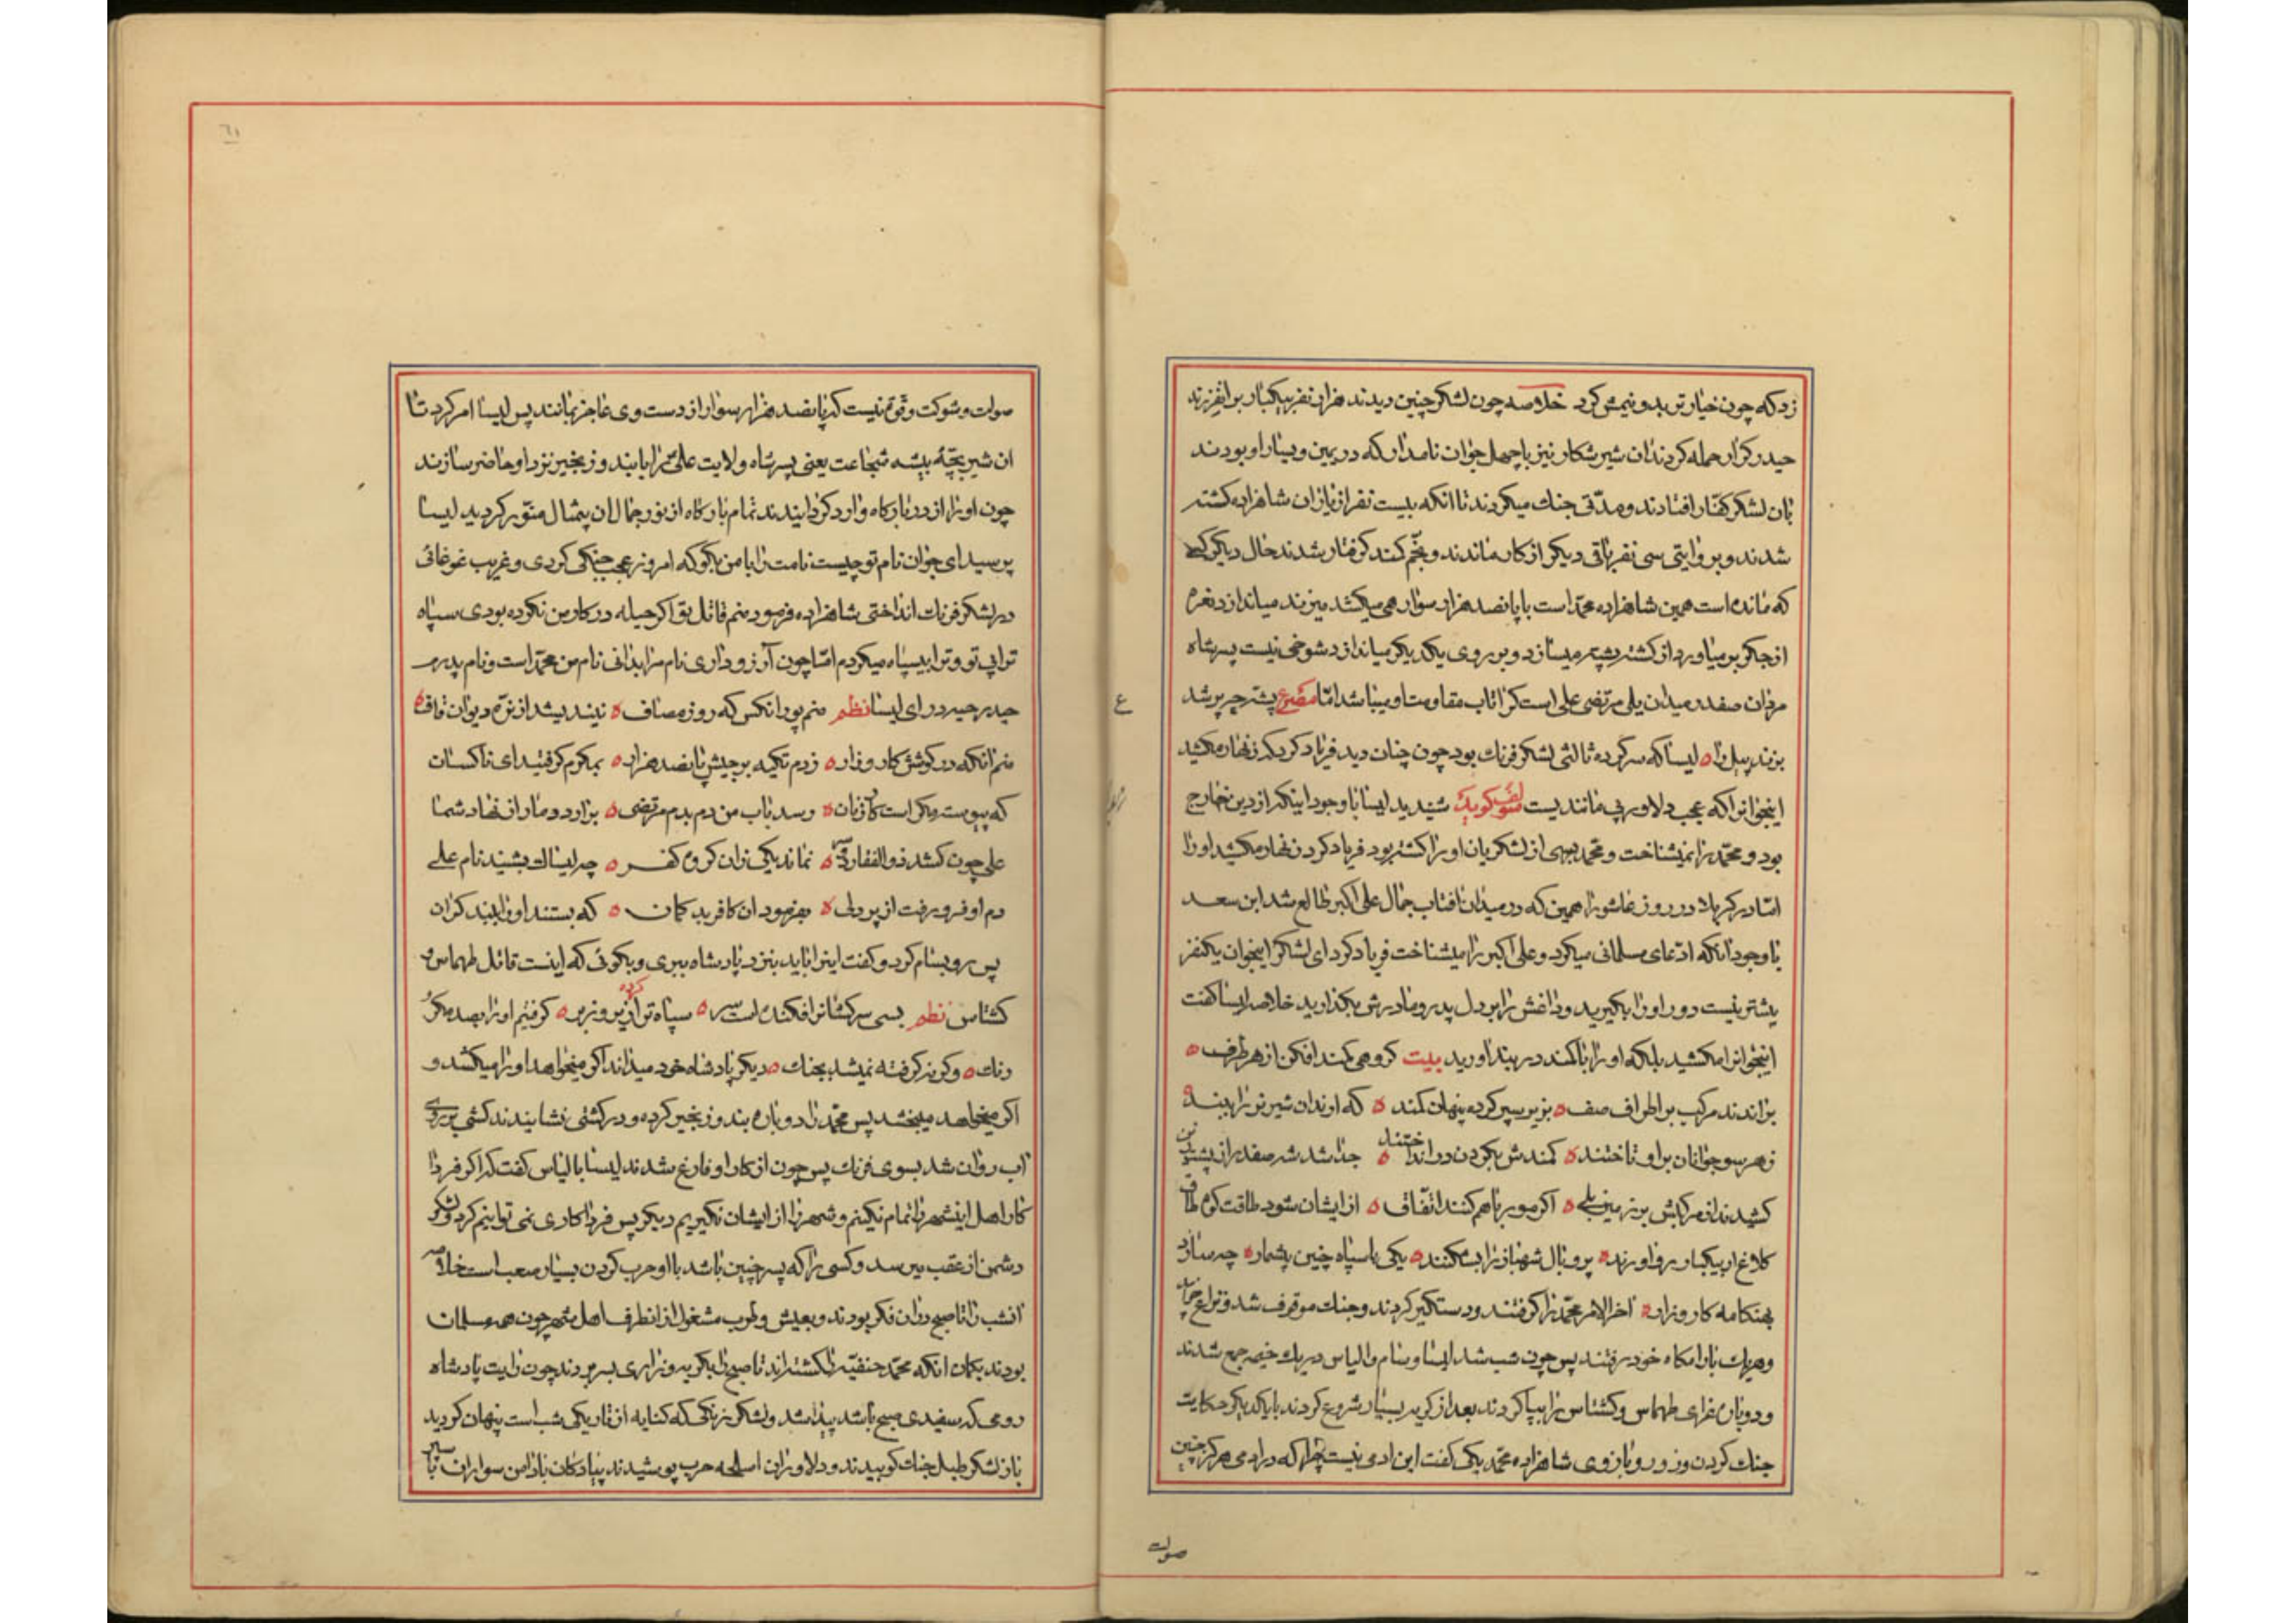 زد که چون خیار تر بدو نیمش کرد خلاصه چون لشکر چنین دیدند هزار نفر بیکبار بر انفرزند
حیدر کرار حمله کردند ان شیر شکار نیز با چهل جوان نامدار که در یمین و یسار او بودند
بان لشکر کفار افتادند و مدتی جنک میکردند تا انکه بیست نفر از یاران شاهزاده کشته
شدند و بروایتی سی نفر باقی دیکر از کار ماندند و بخم کمند کرفتار شدند حال دیکر
که مانده است همین شاهزاده محمد است با پانصد هزار سوار هی میکشد میزند میاندازد نعره
از جکر بر میاورد از کشته پشته میسازد و بر روی یکدیکر میاندازد شوخی نیست پسر شاه
مردان صفدر میدان یلی مرتضی علی است کرا تاب مقاومت او میباشد اما مصرع پشه چو پر شد
بزند پیل را لیسا که سرکرده ثالثی لشکر فرنک بود چون چنان دید فریاد کرد که زنهار مکشید
اینجوانرا که عجب دلاور بی مانندیست مؤلف کوید شنیدید لیسا با وجود اینکه از دین خارج
بود و محمد را نمیشناخت و محمد بسی از لشکریان او را کشته بود فریاد کرد زنهار مکشید او را
اما در کربلا در روز عاشورا همین که در میدان افتاب جمال علی اکبر طالع شد ابن سعد
با وجود انکه ادعای مسلمانی میکرد و علی اکبر را میشناخت فریاد کرد ای لشکر اینجوان یکنفر
بیشتر نیست دور او را بکیرید و داغش را بر دل پدر و مادرش بکذارید خلاصه لیسا کفت
اینجوانرا مکشید بلکه او را با کمند در بند اورید بیت کروهی کمند افکن از هر طرف
براندند مرکب بر اطراف صف بزیر سپر کرده پنهان کمند که اوندان شیر نر را ببند
ز هر سو جوانان بر او تاختند کمندش بکردن در انداختند جدا شد شه صفدر از پشت زین
کشیدند از مرکبش بر زمین بلی اکر مور با هم کنند اتفاق از ایشان شود طاقت کوه طاق
کلاغ ار بیکبار رو اورند پر و بال شهباز را بشکنند یکی با سپاه چنین بیشمار چه سازد
بهنکامه کارزار اخر الامر محمد را کرفتند و دستکیر کردند و جنک موقوف شد
و هر یک بارامکاه خود رفتند پس چون شب شد لیسا و سام و الیاس در یک خیمه جمع شدند
و دوباره عزای طهماس و کشتاس را بپا کردند بعد از کریه بسیار شروع کردند با یکدیکر حکایت
جنک کردن و زور و بازوی شاهزاده محمد یکی کفت این ادمی نیست چرا که در ادمی هرکز چنین
صولت
صولت و شوکت و قوه نیست که پانصد هزار سوار از دست وی عاجز بمانند پس لیسا امر کرد تا
ان شیر بچهٔ بیشه شجاعت یعنی پسر شاه ولایت علی را با بند و زنجیر نزد او حاضر سازند
چون او را از در بارکاه وارد کردانیدند تمام بارکاه از نور جمال ان بیمثال منور کردید لیسا
پرسید ای جوان نام تو چیست نامت را با من بکو که امروز عجب جنکی کردی و غریب غوغائی
در لشکر فرنک انداختی شاهزاده فرمود منم قاتل تو اکر حیله در کار من نکرده بودی سپاه
ترا بی تو و ترا بیسپاه میکردم اما چون آرزو داری نام مرا بدانی نام من محمد است و نام پدرم
حیدر حیه در ای لیسا نظم منم پور انکس که روز مصاف نیندیشد از نره دیوان قاف
منم انکه در کوشش کارزار زدم تکیه بر جیش پانصد هزار بمکرم کرفتید ای ناکسان
که پیوسته مکر است کار زنان رسد باب من دم بدم مرتضی برارد دمار از نهاد شما
علی چون کشد ذوالفقار نماند یکی زان کروه کفر چه لیسا بشنید نام علی
دم او فرو رفت از پر دلی بفرمود ان کافر بد کمان که بستند او را ببند کران
پس رو بسام کرد و کفت اینرا باید بنزد پادشاه ببری و بکوئی که اینست قاتل طهماس و
کشتاس نظم بسی سرکشانرا فکنده است سر سپاه ترا کرده زیر و زبر کرفتیم او را بصد مکر
رنک و کر نه کرفته نمیشد بجنک دیکر پادشاه خود میداند اکر میخواهد او را میکشد و
اکر میخواهد میبخشد پس محمد را دوباره بند و زنجیر کرده و در کشتی نشانیدند کشتی بر روی
اب روان شد بسوی فرنک پس چون از کار او فارغ شدند لیسا با الیاس کفت که اکر فردا
کار اهل اینشهر را تمام نکنیم و شهر را از ایشان نکیریم دیکر پس فردا کاری نمی توانیم کرد و لشکر
دشمن از عقب میرسد و کسی را که پسر چنین باشد با او حرب کردن بسیار صعب است خلاصه
انشب را تا صبح دران فکر بودند و بعیش و طرب مشغول از انطرف اهل شهر چون همه مسلمان
بودند بکمان انکه محمد حنفیه را کشته‌اند تا صبح را بکریه و زاری بسر بردند چون رایت پادشاه
رومی که سفیدی صبح باشد پیدا شد و لشکر زنکی که کنایه از تاریکی شب است پنهان کردید
باز لشکر طبل جنک کوبیدند و دلاوران اسلحه حرب پوشیدند پیادکان سواران